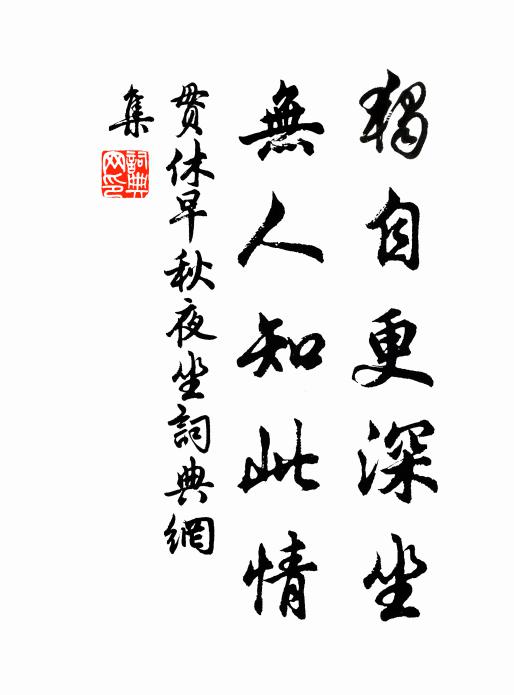 獨自更深坐
無人知此情
貫休早秋夜坐詞典網
集
詞典
网印